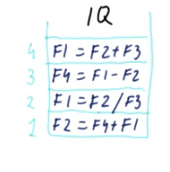 IQ
4 F1 = F2 + F3
3 F4 = F1 - F2
2 F1 = F2 / F3
1 F2 = F4 + F1